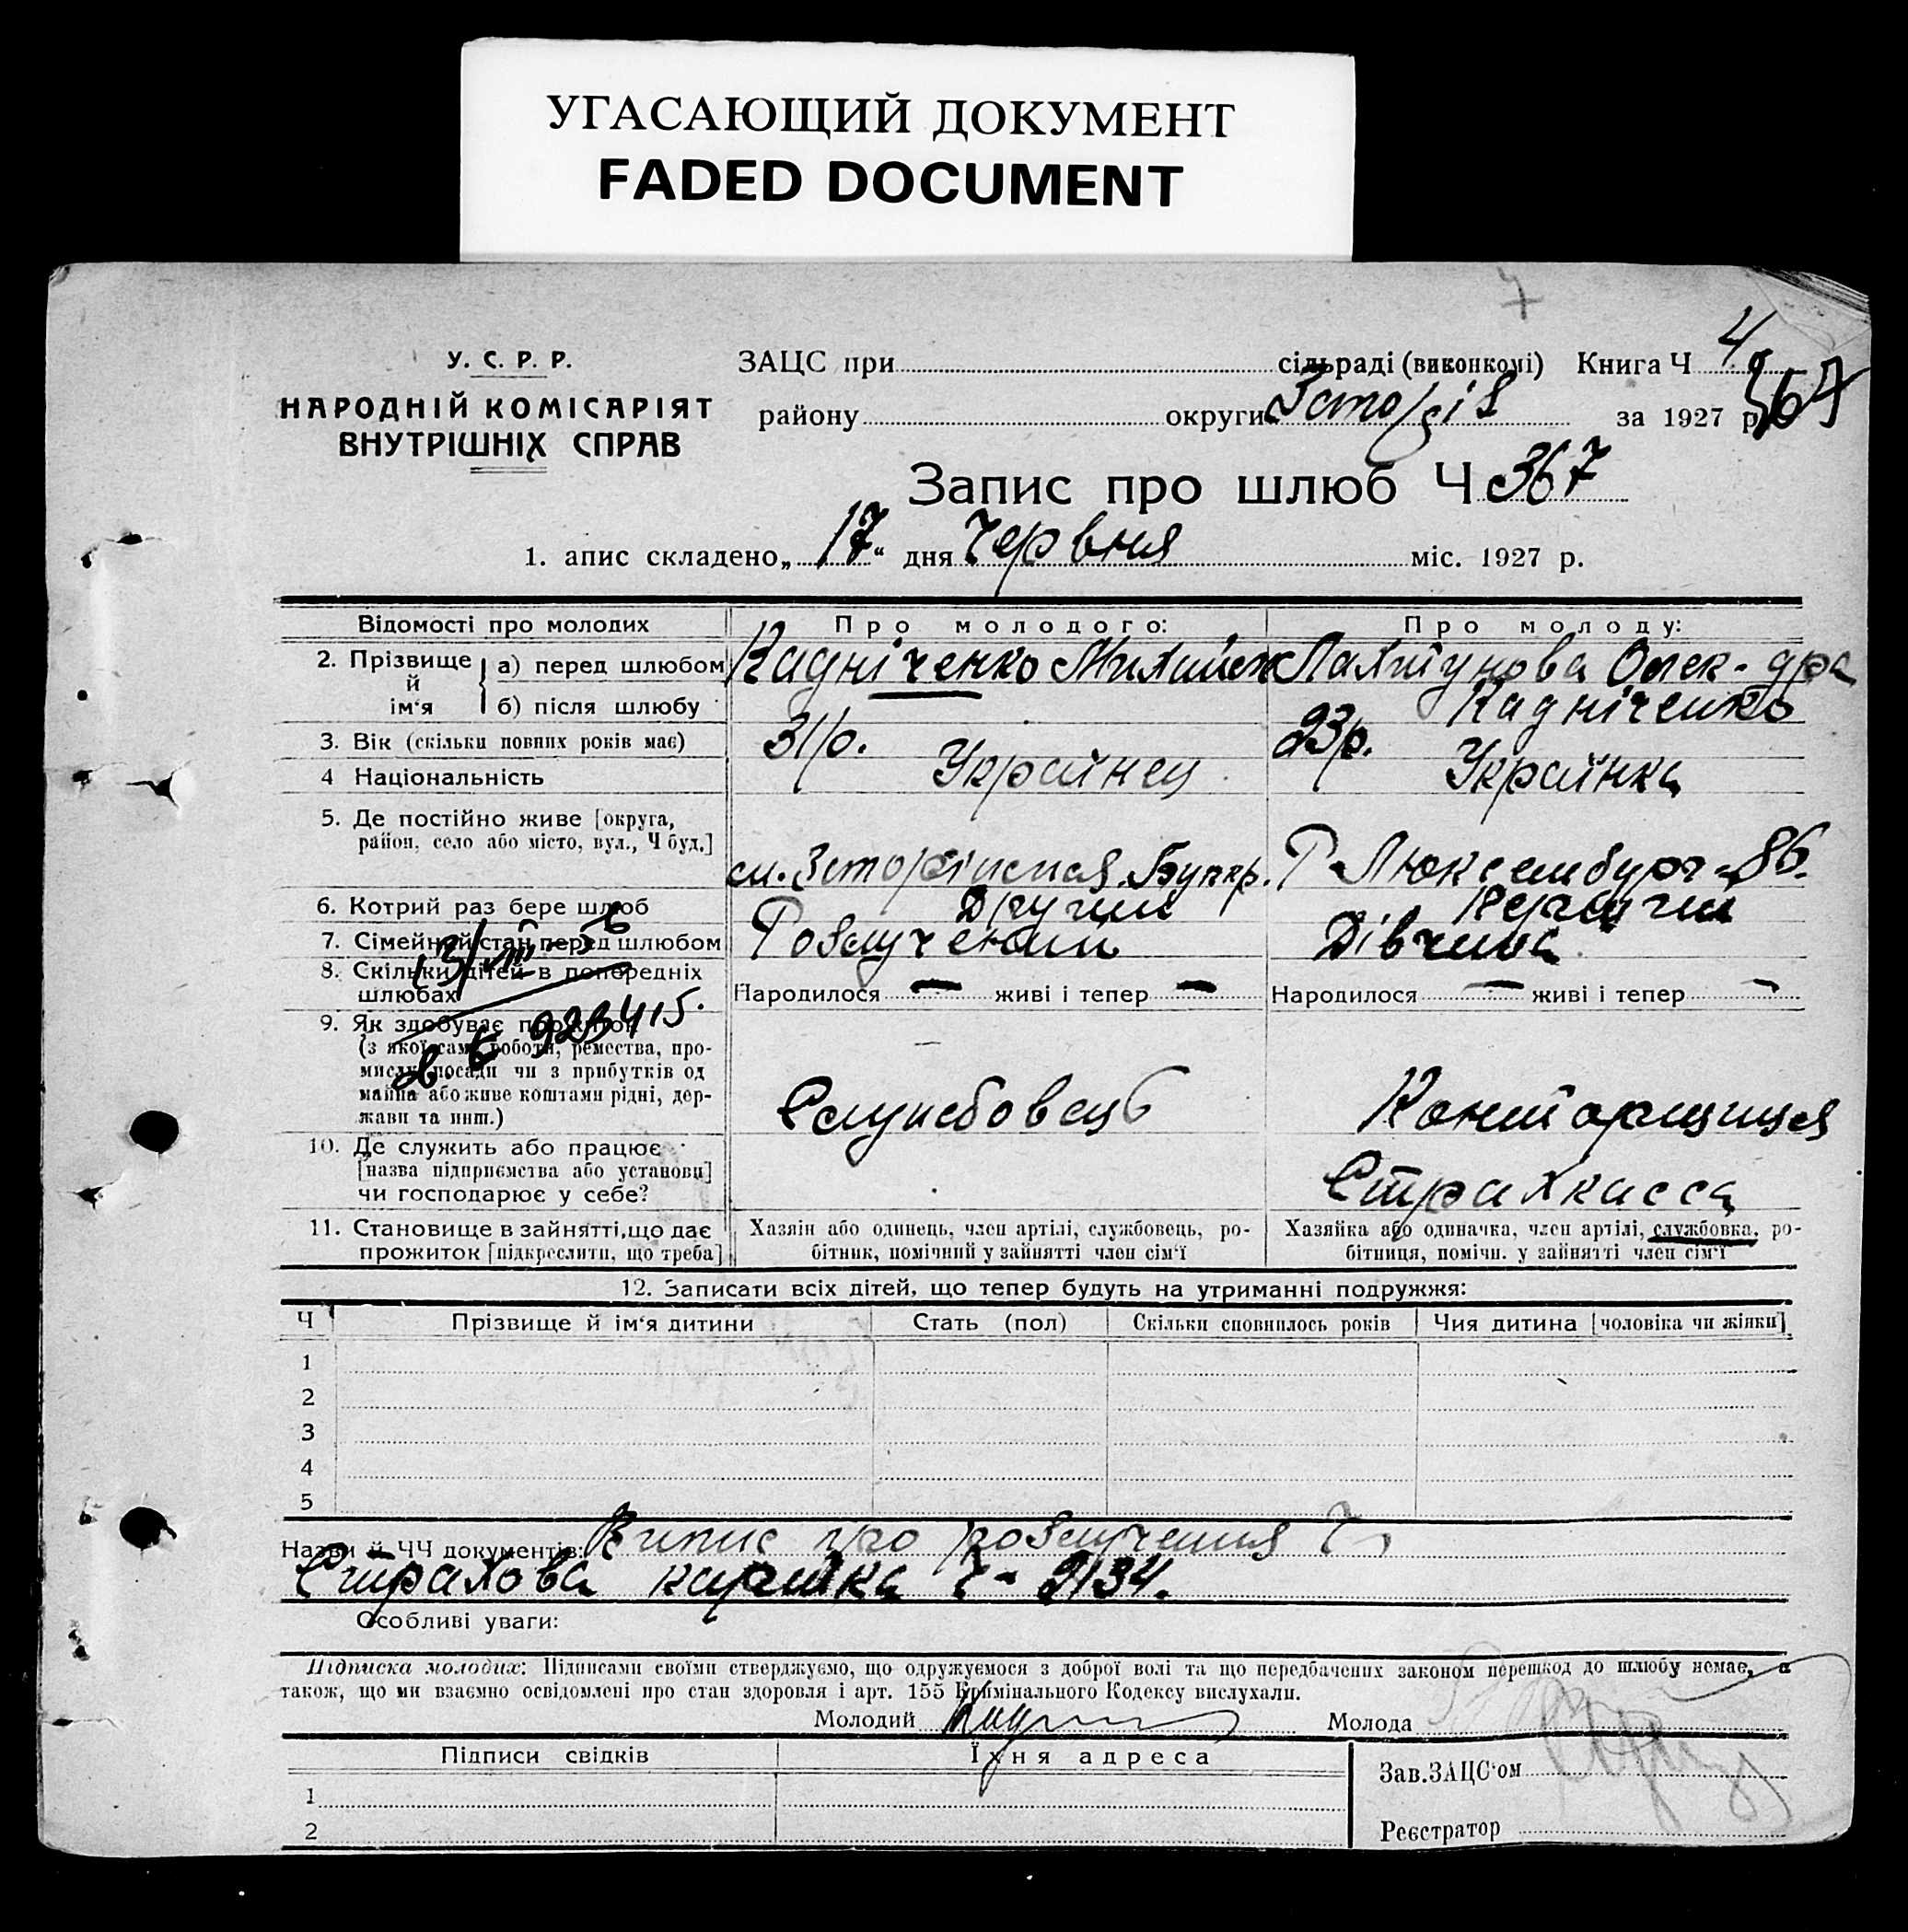 УГАСАЮЩИЙ ДОКУМЕНТ
FADED DOCUMENT
7
У. С. Р. Р.
НАРОДНІЙ КОМІСАРІЯТ
ВНУТРІШНІХ СПРАВ
ЗАЦС при сільраді (виконкомі) Книга Ч 4
району округи за 1927 р. 367
Запис про шлюб Ч 367
1. апис складено „17“ дня Червня міс. 1927 р.
Відомості про молодих Про молодого: Про молоду:
2. Прізвище й ім‘я а) перед шлюбом Кадніченко Олек-дра
б) після шлюбу Кадніченко
3. Вік (скільки повних років має) 31 р. 23 р.
4 Національність Українец Українка
5. Де постійно живе [округа,
район, село або місто, вул., Ч буд.]
Р-Люксембург-86.
6. Котрий раз бере шлюб Другий Перший
7. Сімейний стан перед шлюбом Розлучений Дівчина
8. Скільки дітей в попередніх
шлюбах Народилося — живі і тепер — Народилося — живі і тепер —
9. Як здобуває прожиток
923415.
(з якої саме роботи, ремества, про-
мислу, посади чи з прибутків од
майна або живе коштами рідні, дер-
жави та инш.) Службовець Конторщиця
10. Де служить або працює
[назва підприємства або установи]
чи господарює у себе? Страхкасса
11. Становище в зайнятті, що дає
прожиток [підкреслити, що треба]
Хазяїн або одинець, член артілі, службовець, ро-
бітник, помічний у зайнятті член сім‘ї
Хазяйка або одиначка, член артілі, службовка, ро-
бітниця, помічн. у зайнятті член сім‘ї
12. Записати всіх дітей, що тепер будуть на утриманні подружжя:
Ч Прізвище й ім‘я дитини Стать (пол) Скільки сповнилось років Чия дитина [чоловіка чи жінки]
1
2
3
4
5
Назви й ЧЧ документів: Випис про розлучення Ч
Страхова картка Ч - 2134.
Особливі уваги:
Підписка молодих: Підписами своїми стверджуємо, що одружуємося з доброї волі та що передбачених законом перешкод до шлюбу немає, а
також, що ми взаємно освідомлені про стан здоровля і арт. 155 Кримінального Кодексу вислухали.
Молодий Молода
Підписи свідків Їхня адреса
Зав.ЗАЦС‘ом
1
2
Реєстратор